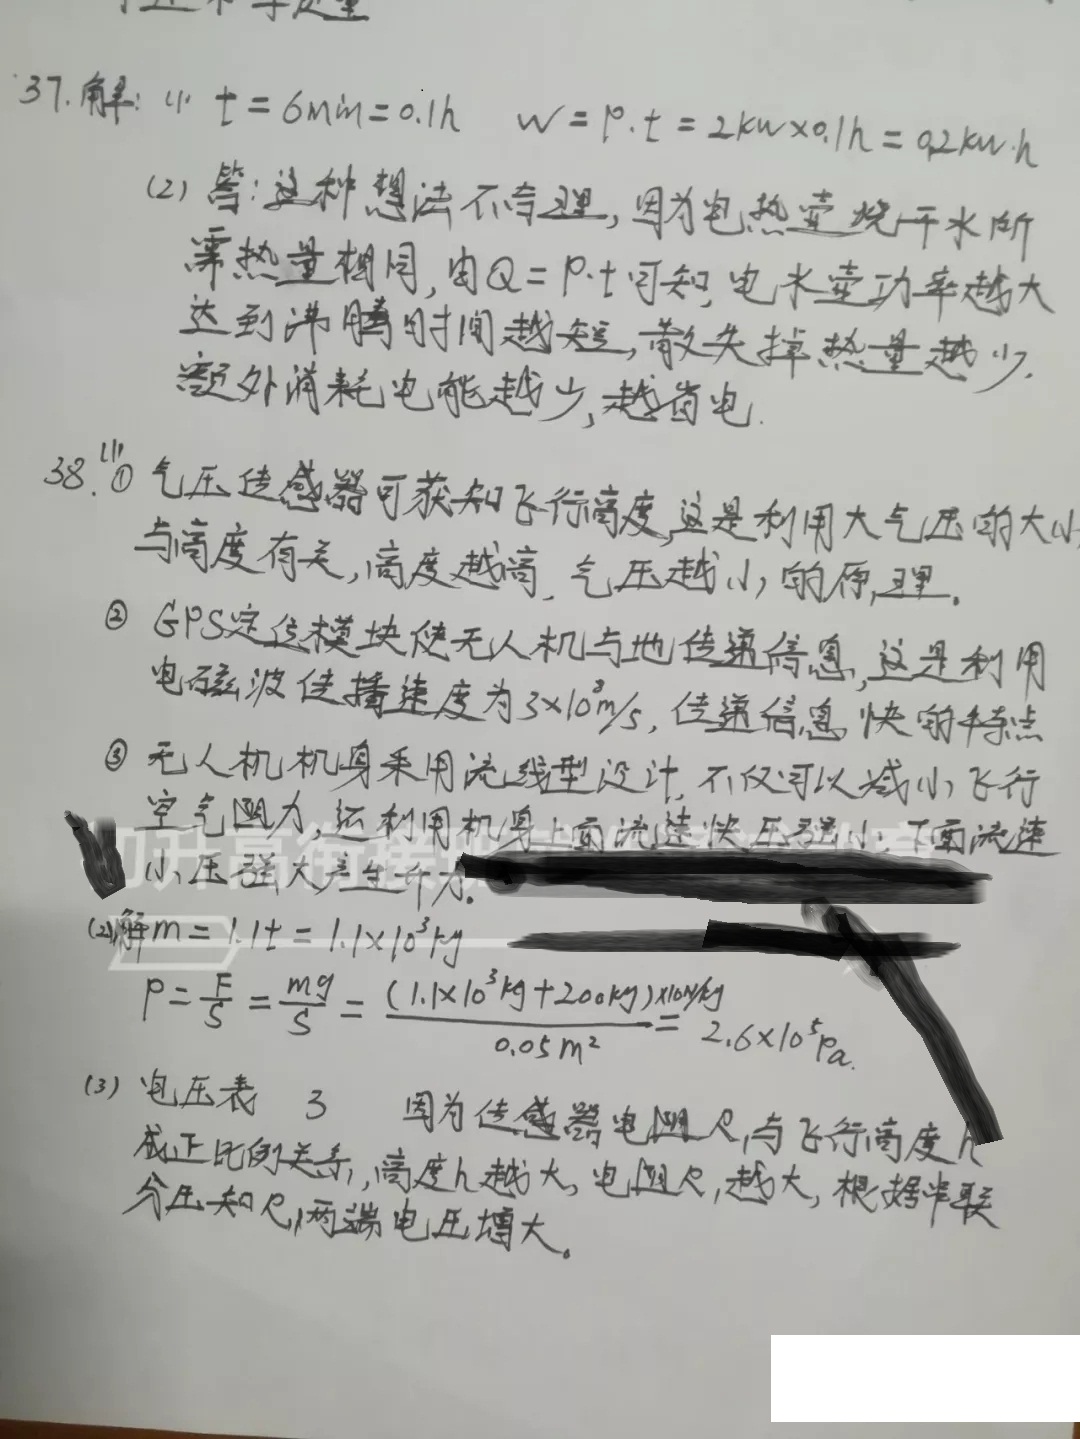 37.解: (1) t=6min=0.1h W=P·t=2kw×0.1h=0.2kw·h
(2) 答:这种想法不合理,因为电热壶烧开水所
需热量相同,由Q=P·t可知,电水壶功率越大
达到沸腾时间越短,散失掉热量越少.
额外消耗电能越少,越省电.
38.(1)① 气压传感器可获知飞行高度,这是利用大气压的大小
与高度有关,高度越高,气压越小的原理。
② GPS定位模块使无人机与地传递信息,这是利用
电磁波传播速度为3×10⁸m/s,传递信息快的特点
③ 无人机机身采用流线型设计,不仅可以减小飞行
空气阻力,还利用机身上面流速快压强小,下面流速
小压强大产生升力。
(2)解m=1.1t=1.1×10³kg
P=F/S=mg/S=(1.1×10³kg+200kg)×10N/kg/0.05m²=2.6×10⁵Pa.
(3) 电压表 3 因为传感器电阻R₁与飞行高度h
成正比例关系,高度h越大,电阻R₁越大,根据串联
分压知R₁两端电压增大。